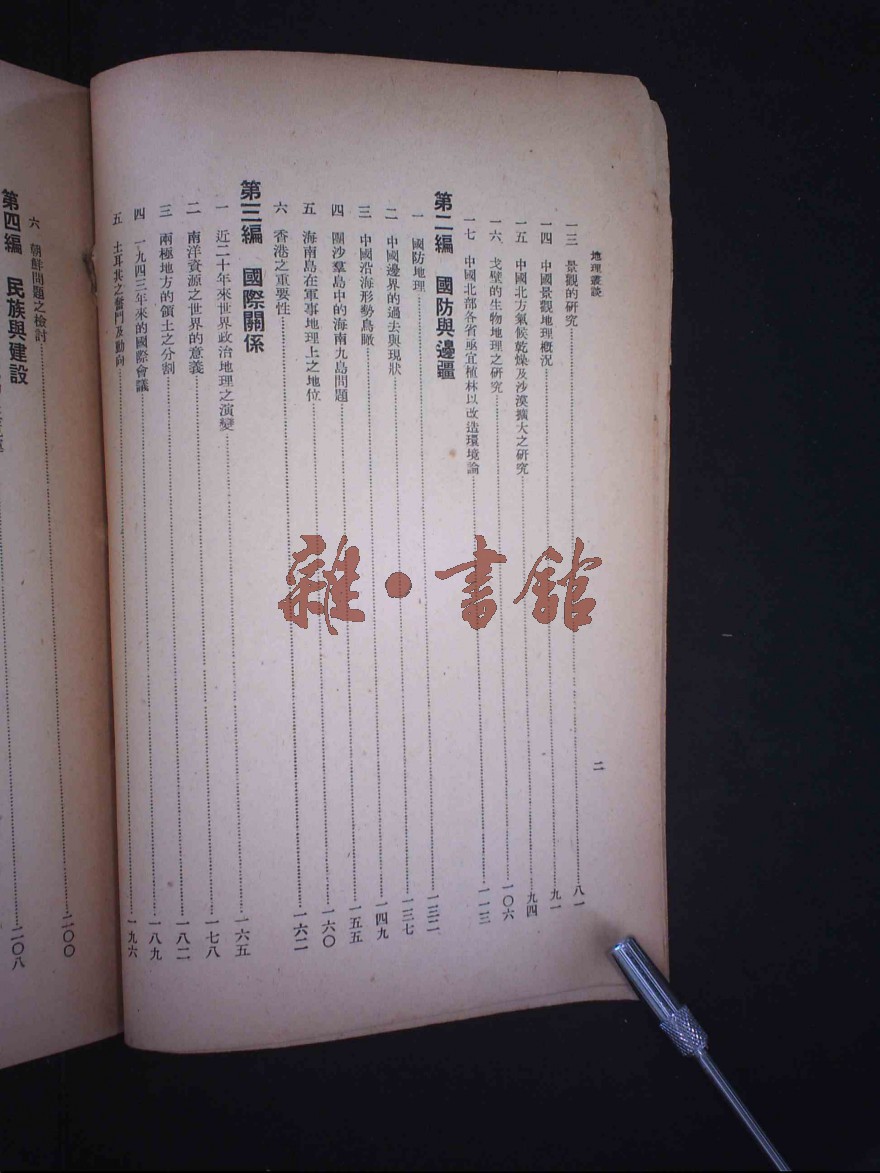 地理叢談
二
一三 景觀的研究 八一
一四 中國景觀地理概況 九一
一五 中國北方氣候乾燥及沙漠擴大之研究 九四
一六 戈壁的生物地理之研究 一〇六
一七 中國北部各省亟宜植林以改造環境論 一一三
第二編 國防與邊疆
一 國防地理 一三二
二 中國邊界的過去與現狀 一三七
三 中國沿海形勢鳥瞰 一四九
四 團沙羣島中的海南九島問題 一五五
五 海南島在軍事地理上之地位 一六〇
六 香港之重要性 一六二
第三編 國際關係
一 近二十年來世界政治地理之演變 一六五
二 南洋資源之世界的意義 一七八
三 兩極地方的領土之分割 一八二
四 一九四三年來的國際會議 一八九
五 土耳其之奮鬥及動向 一九六
六 朝鮮問題之檢討 二〇〇
第四編 民族與建設
二〇八
雜·書館